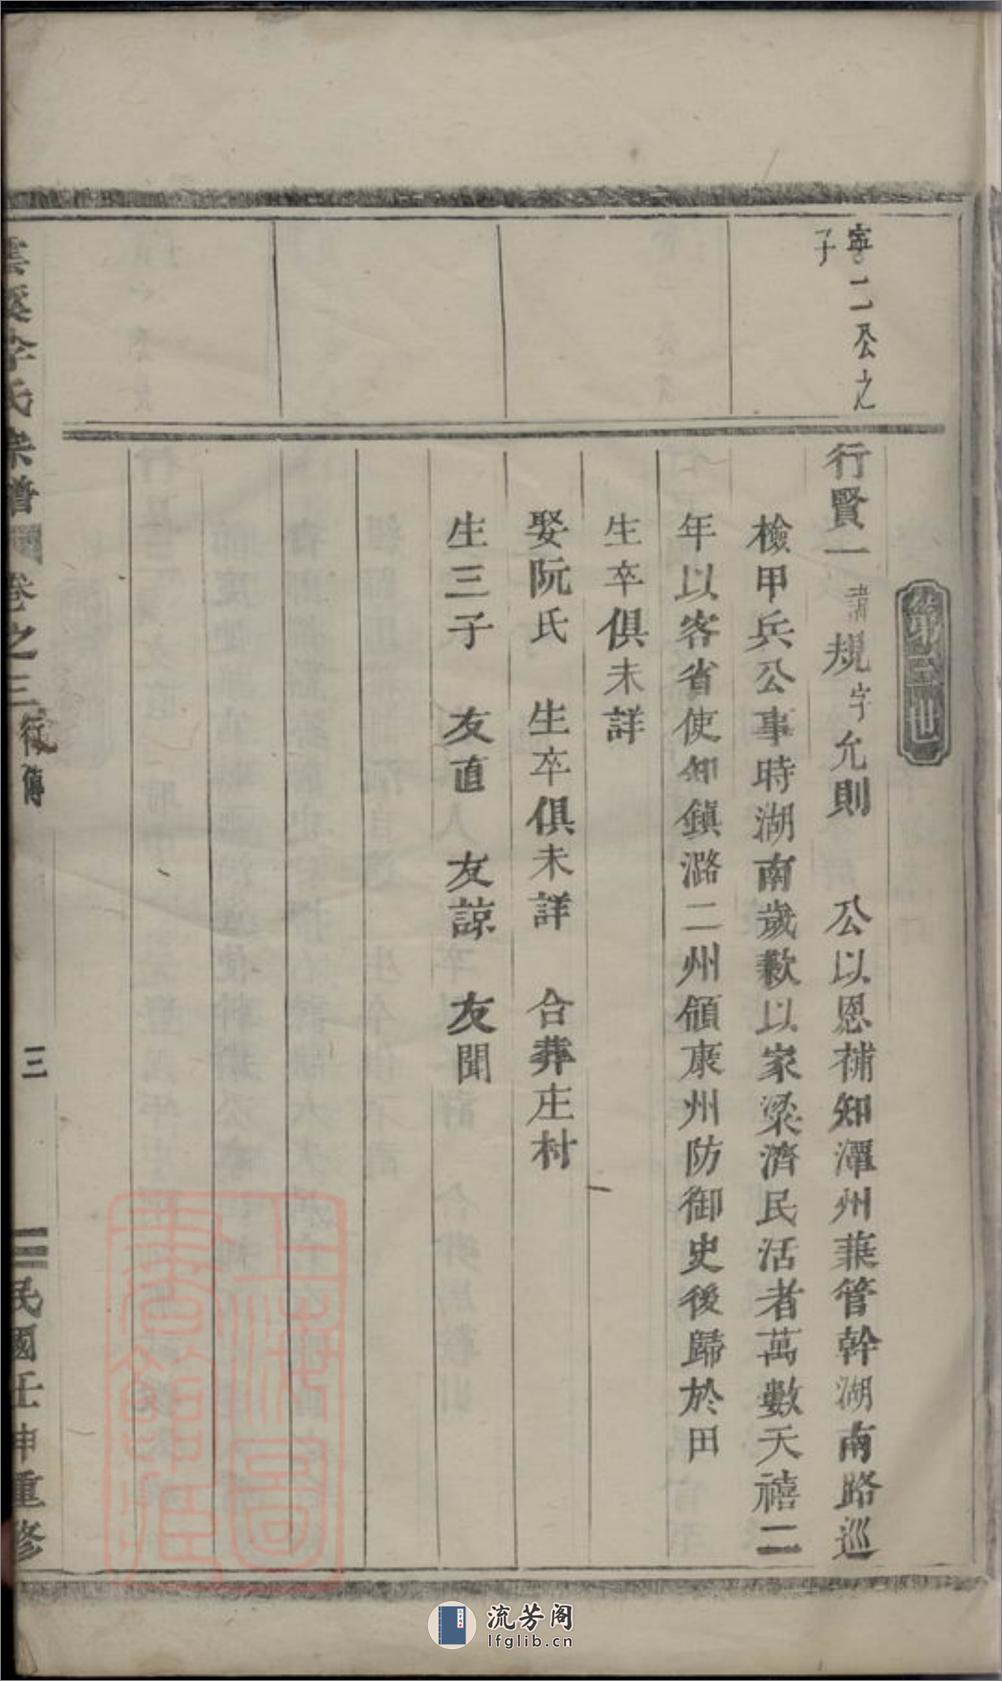 第三世
寧二公之
子
行賢一 諱規字允則 公以恩補知潭州兼管幹湖南路巡
檢甲兵公事時湖南歲歉以家粱濟民活者萬數天禧二
年以客省使知鎮潞二州領康州防御史後歸於田
生卒俱未詳
娶阮氏 生卒俱未詳 合葬庄村
生三子 友直 友諒 友聞
李氏宗譜 卷之三 行傳 三 民國壬申重修
上海圖書館藏
流芳阁
lfglib.cn